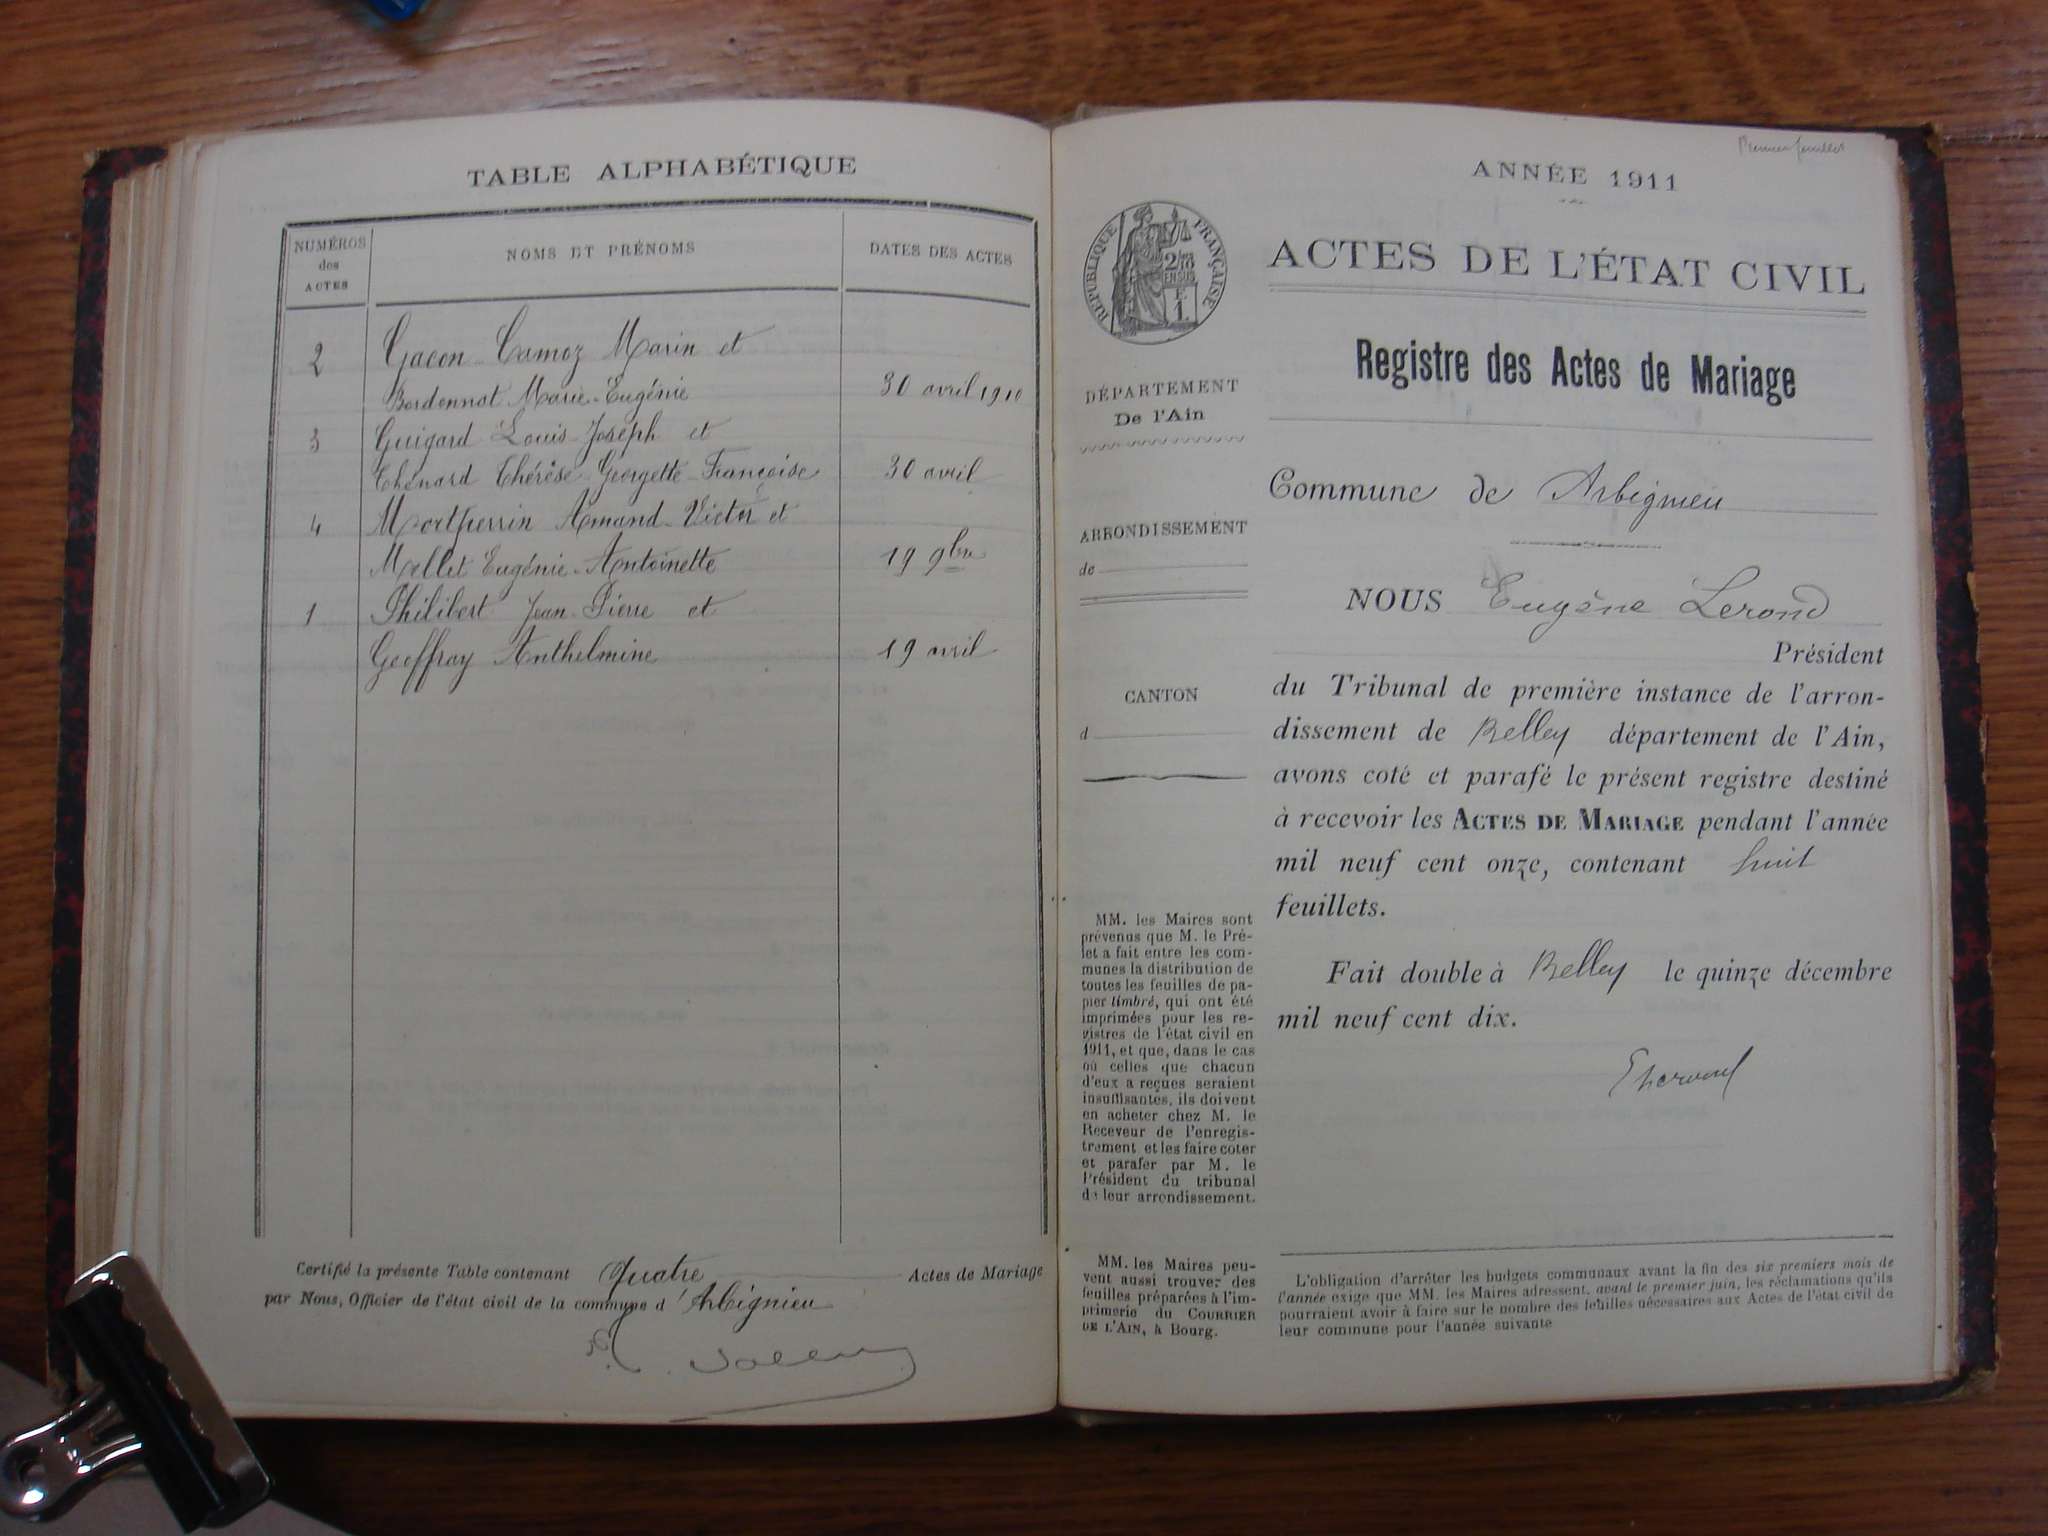 TABLE ALPHABÉTIQUE
NUMÉROS
des
ACTES
NOMS ET PRÉNOMS
DATES DES ACTES
2 Gacon-Camoz Marin et
Bordonnat Marie-Eugénie 30 avril 1910
3 Guigard Louis-Joseph et
Chenard Thérèse-Georgette-Françoise 30 avril
4 Mortherrin Amand-Victor et
Mollet Eugénie-Antoinette 19 9bre
1 Philibert Jean-Pierre et
Geoffray Anthelmine 19 avril
Certifié la présente Table contenant Quatre Actes de Mariage
par Nous, Officier de l'état civil de la commune d'Arbignieu
Premier feuillet
ANNÉE 1911
RÉPUBLIQUE FRANÇAISE
2/10
EN SUS
1 F
ACTES DE L'ÉTAT CIVIL
Registre des Actes de Mariage
DÉPARTEMENT
De l'Ain
ARRONDISSEMENT
de
CANTON
d
MM. les Maires sont
prévenus que M. le Pré-
fet a fait entre les com-
munes la distribution de
toutes les feuilles de pa-
pier timbré, qui ont été
imprimées pour les re-
gistres de l'état civil en
1911, et que, dans le cas
où celles que chacun
d'eux a reçues seraient
insuffisantes, ils doivent
en acheter chez M. le
Receveur de l'enregis-
trement et les faire coter
et parafer par M. le
Président du tribunal
de leur arrondissement.
MM. les Maires peu-
vent aussi trouver des
feuilles préparées à l'im-
primerie du COURRIER
DE L'AIN, à Bourg.
Commune de Arbignieu
NOUS Eugène Lerond
Président
du Tribunal de première instance de l'arron-
dissement de Belley département de l'Ain,
avons coté et parafé le présent registre destiné
à recevoir les ACTES DE MARIAGE pendant l'année
mil neuf cent onze, contenant huit
feuillets.
Fait double à Belley le quinze décembre
mil neuf cent dix.
L'obligation d'arrêter les budgets communaux avant la fin des six premiers mois de
l'année exige que MM. les Maires adressent, avant le premier juin, les réclamations qu'ils
pourraient avoir à faire sur le nombre des feuilles nécessaires aux Actes de l'état civil de
leur commune pour l'année suivante